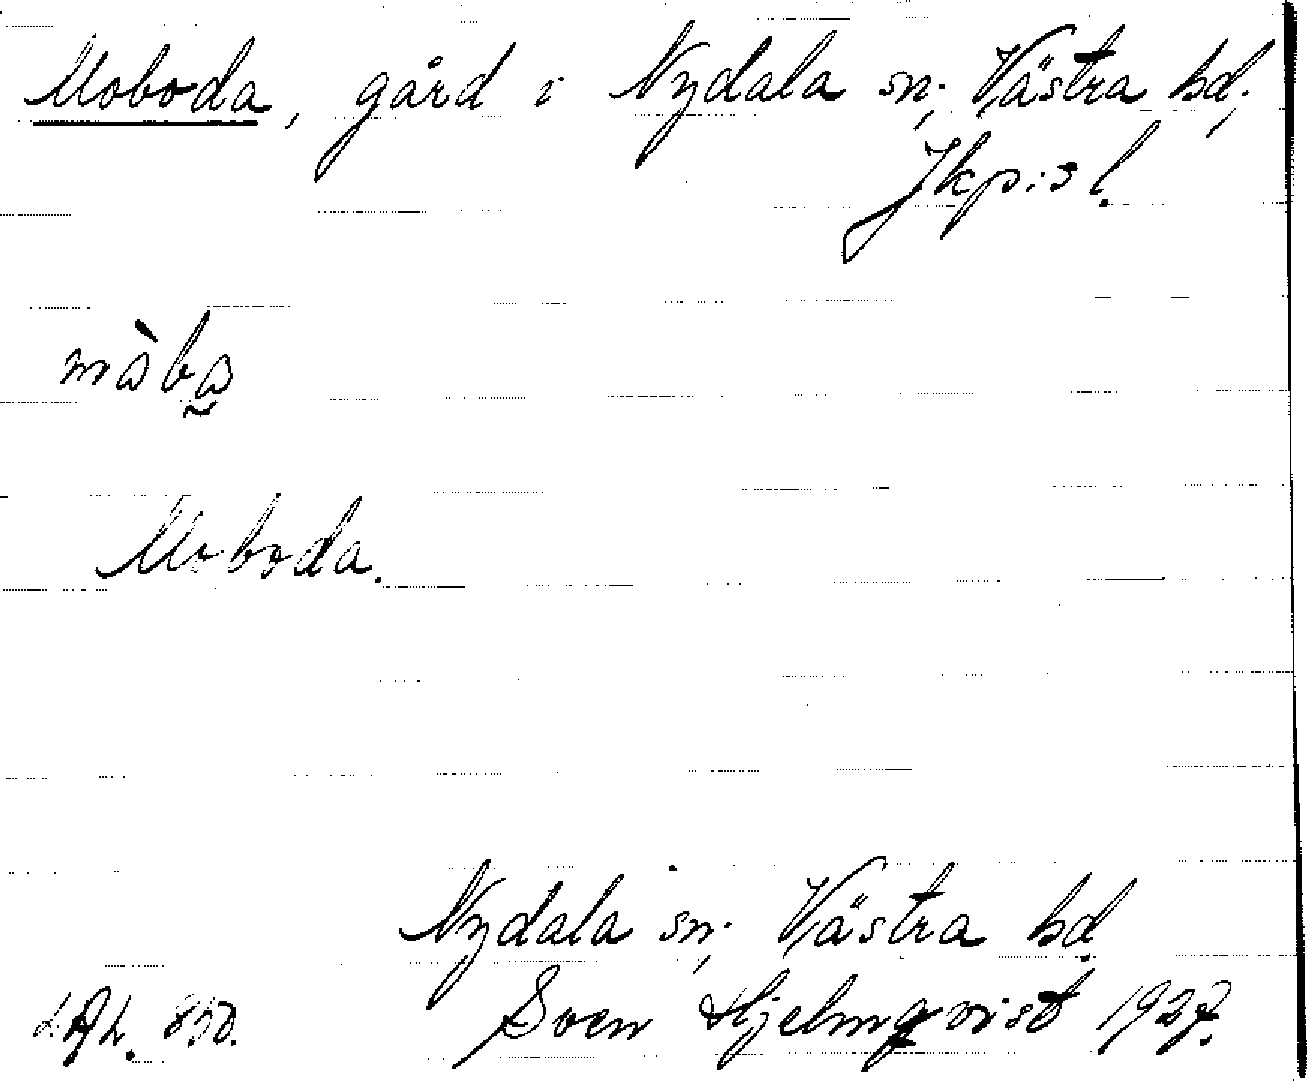 Moboda, gård i Nydala sn; Västra hd;
Jkp:s l.
màba
Moboda.
Nydala sn; Västra hd
Sven Hjelmqvist 1927.